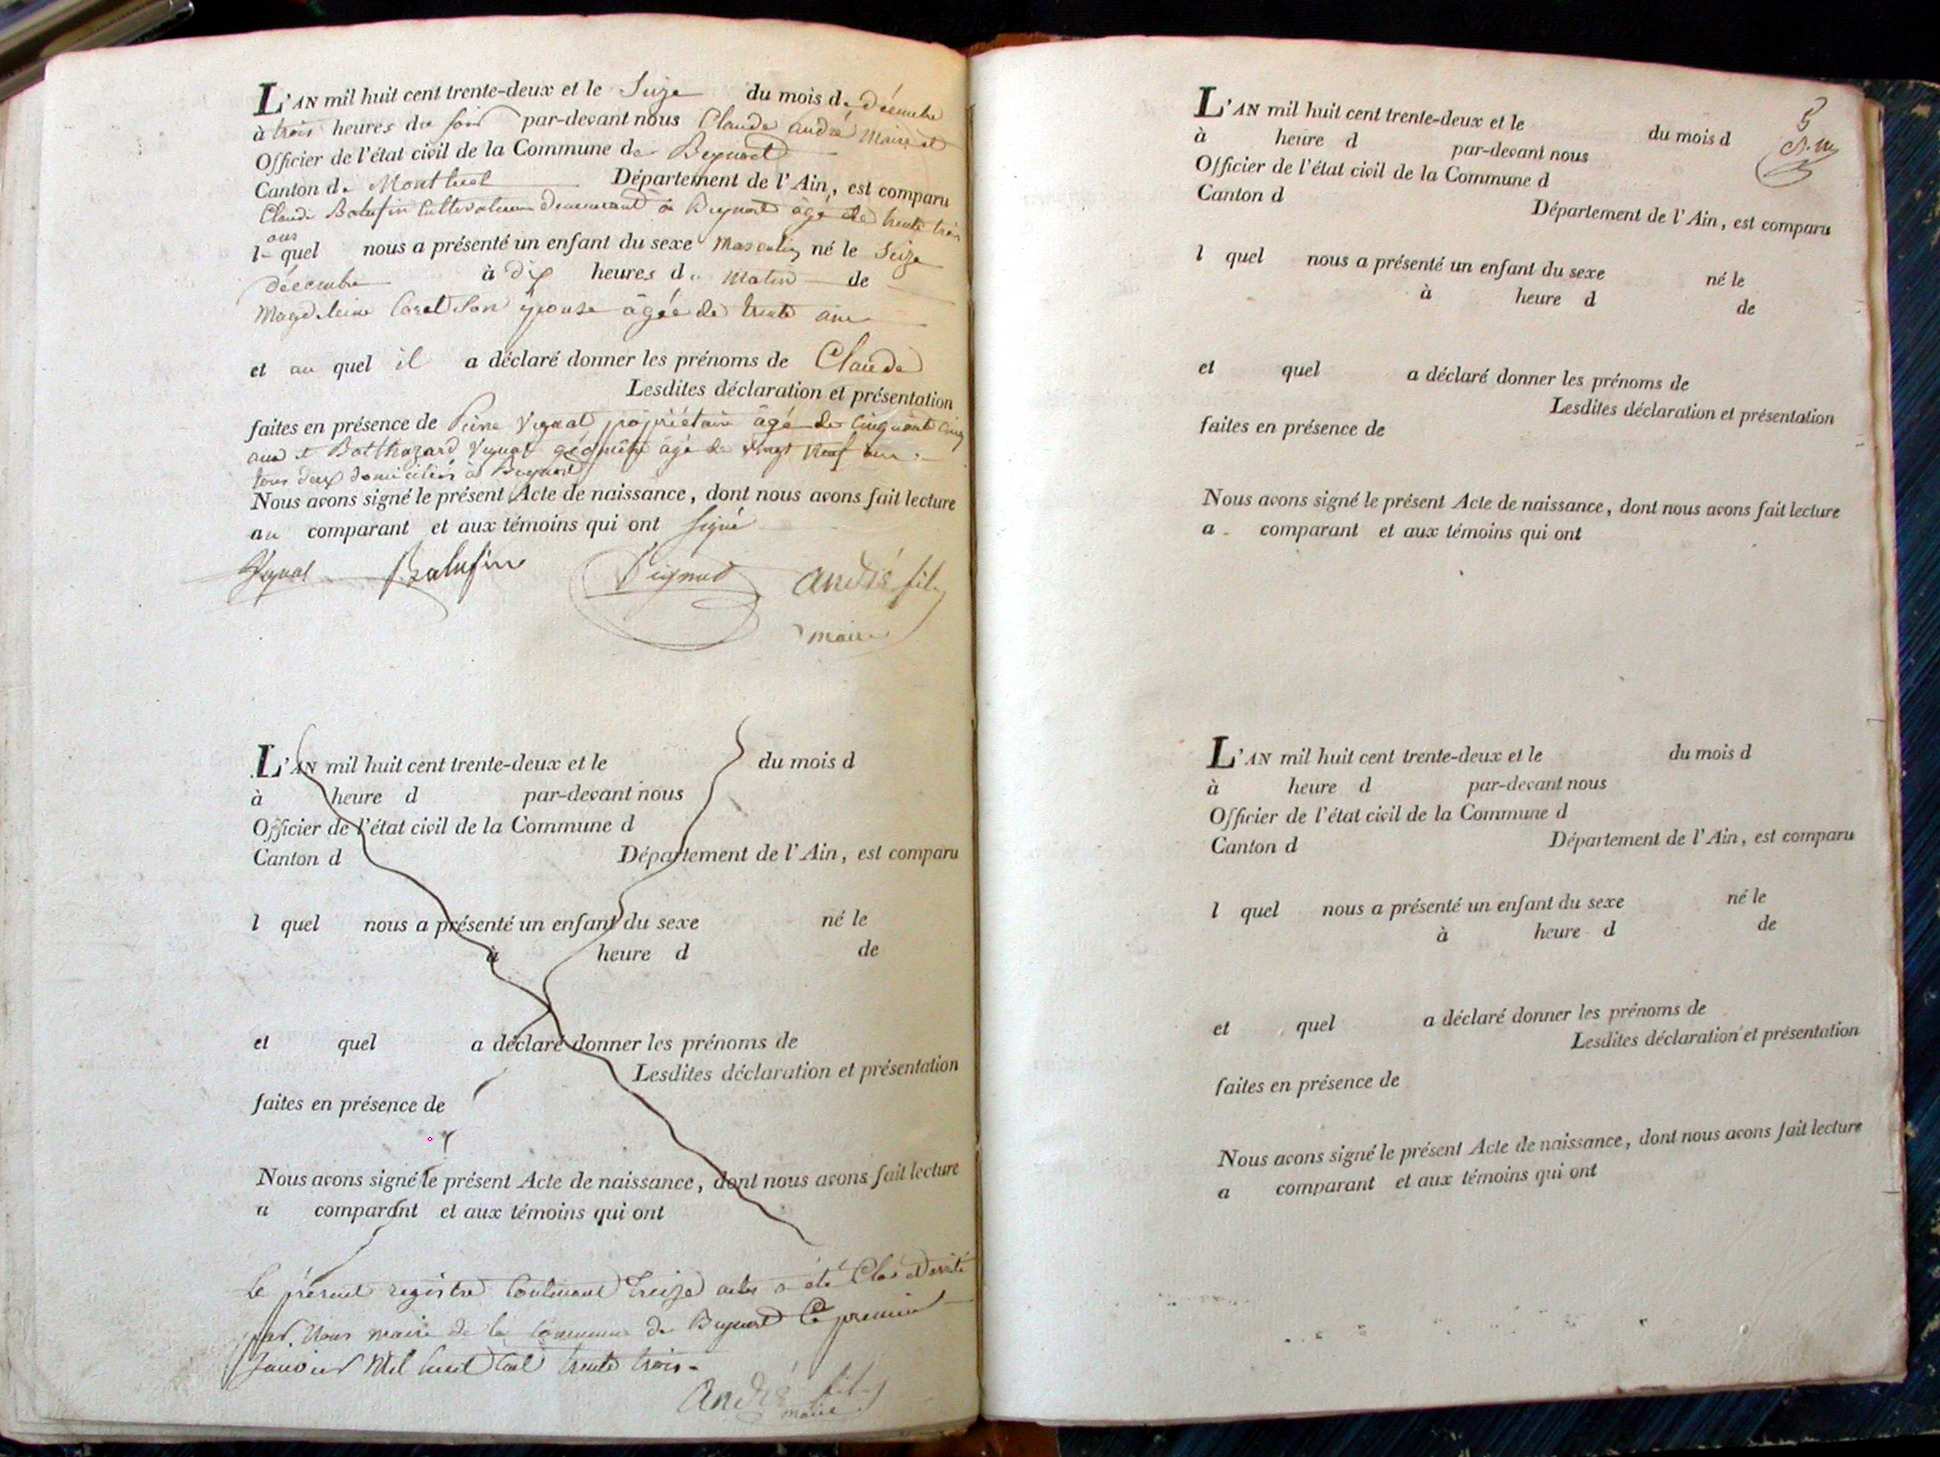 L'AN mil huit cent trente-deux et le Seize du mois de décembre
à trois heures du soir par-devant nous Claude andré Maire et
Officier de l'état civil de la Commune de Beynost
Canton de Montluel Département de l'Ain, est comparu
Claude Balufin Cultivateur demeurant à Beynost âgé de trente trois
ans
lequel nous a présenté un enfant du sexe Masculin né le Seize
décembre à dix heures du Matin de
Magdeleine Caret Son épouse âgée de trente ans
et au quel il a déclaré donner les prénoms de Claude
Lesdites déclaration et présentation
faites en présence de Pierre Vignat propriétaire âgé de Cinquante Cinq
ans et Balthazard Vignat géomètre âgé de vingt Neuf ans
tous deux domiciliés à Beynost
Nous avons signé le présent Acte de naissance, dont nous avons fait lecture
au comparant et aux témoins qui ont signé
Vignat Balufin Vignat André fils
maire
L'AN mil huit cent trente-deux et le du mois d
à heure d par-devant nous
Officier de l'état civil de la Commune d
Canton d Département de l'Ain, est comparu
l quel nous a présenté un enfant du sexe né le
à heure d de
et quel a déclaré donner les prénoms de
Lesdites déclaration et présentation
faites en présence de
Nous avons signé le présent Acte de naissance, dont nous avons fait lecture
a comparant et aux témoins qui ont
Le présent registre Contenant Treize actes a été Clos et arrêté
par Nous maire de la Commune de Beynost Ce premier
Janvier Mil huit Cent trente trois.
André fils
maire
5
L'AN mil huit cent trente-deux et le du mois d
à heure d par-devant nous
Officier de l'état civil de la Commune d
Canton d Département de l'Ain, est comparu
l quel nous a présenté un enfant du sexe né le
à heure d de
et quel a déclaré donner les prénoms de
Lesdites déclaration et présentation
faites en présence de
Nous avons signé le présent Acte de naissance, dont nous avons fait lecture
a comparant et aux témoins qui ont
L'AN mil huit cent trente-deux et le du mois d
à heure d par-devant nous
Officier de l'état civil de la Commune d
Canton d Département de l'Ain, est comparu
l quel nous a présenté un enfant du sexe né le
à heure d de
et quel a déclaré donner les prénoms de
Lesdites déclaration et présentation
faites en présence de
Nous avons signé le présent Acte de naissance, dont nous avons fait lecture
a comparant et aux témoins qui ont